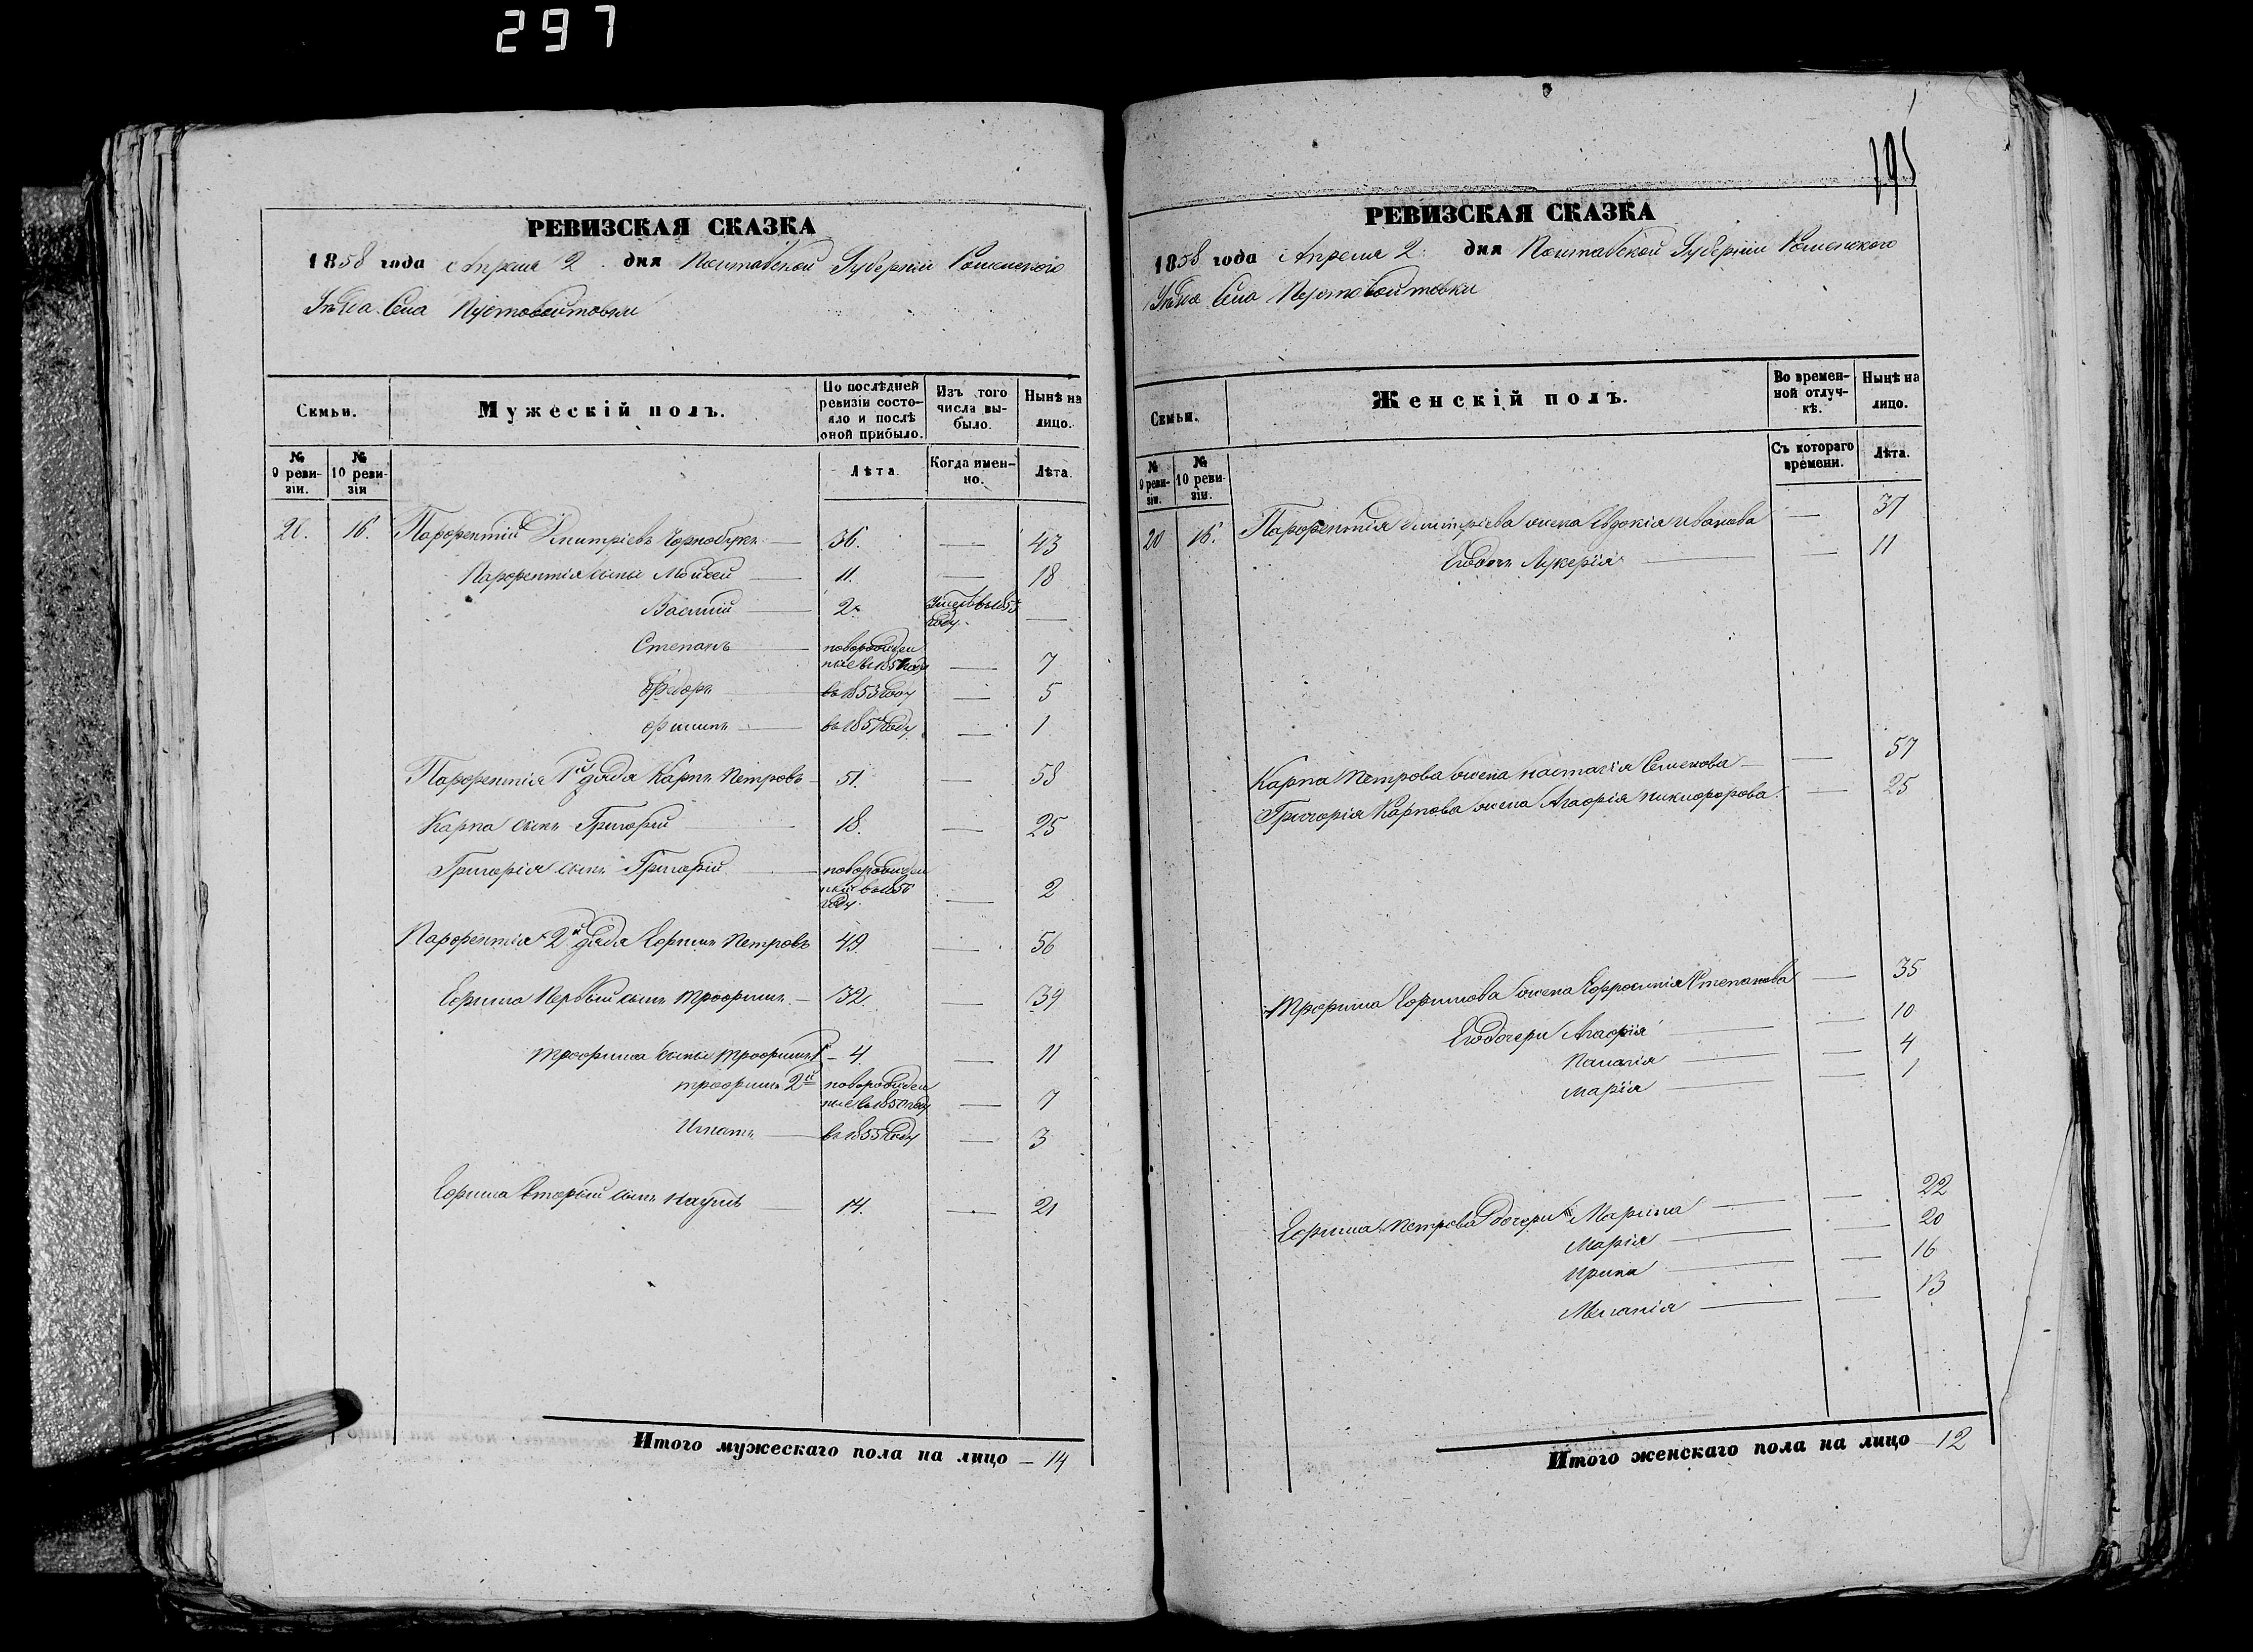 297
195
РЕВИЗСКАЯ СКАЗКА
1858 года Апреля 2 дня Полтавской Губерніи Роменского
Уѣзда Села Пустовойтовки
Семьи.
Мужескій полъ.
По послѣдней ревизіи состояло и послѣ оной прибыло.
Изъ того числа выбыло.
Нынѣ на лицо.
№ 9 ревизіи.
№ 10 ревизіи
Лѣта.
Когда именно.
Лѣта.
20. 16. Парфентій Дмитріевъ Чорнобукъ — 36. — 43
Парфентія сыны Мойсей — 11. — 18
Василій — 2. Умеръ в 1855 году. —
Степанъ — новорожденные в 1851 году — 7
Федоръ — въ 1853 году — 5
Филипъ — въ 1857 году — 1
Парфентія 1й дядя Карпъ Петровъ — 51. — 58
Карпа сынъ Григорій — 18. — 25
Григорія сынъ Григорій — новорожденный в 1856 году. — 2
Парфентія 2й дядя Ефимъ Петровъ 49. — 56
Ефима Первый сынъ Трофимъ — 32. — 39
Трофима сыны Трофимъ 1й — 4 — 11
Трофимъ 2й новорожденные в 1850 году — 7
Игнатъ — въ 1855 году — 3
Ефима вторый сынъ Наумъ — 14. — 21
Итого мужескаго пола на лицо — 14
РЕВИЗСКАЯ СКАЗКА
1858 года Апреля 2. дня Полтавской Губерніи Роменского
Уѣзда Села Пустовойтовки
Семьи.
Женскій полъ.
Во временной отлучкѣ.
Нынѣ на лицо.
№ 9 ревизіи.
№ 10 ревизіи.
Съ котораго времени.
Лѣта.
20 16. Парфентія Дмитріева жена Евдокія Иванова — 37
Его дочь Лукерія — — 11
Карпа Петрова жена Настасія Семенова — — 57
Григорія Карпова жена Агафія Никифорова. — 25
Трофима Ефимова жена Ефросинія Степанова — 35
Его дочери Агафія — — 10
Палагія — — 4
Марія — — 1
Ефима Петрова дочери Марина — — 22
Марія — — 20
Ирина — — 16
Меланія — — 13
Итого женскаго пола на лицо — 12